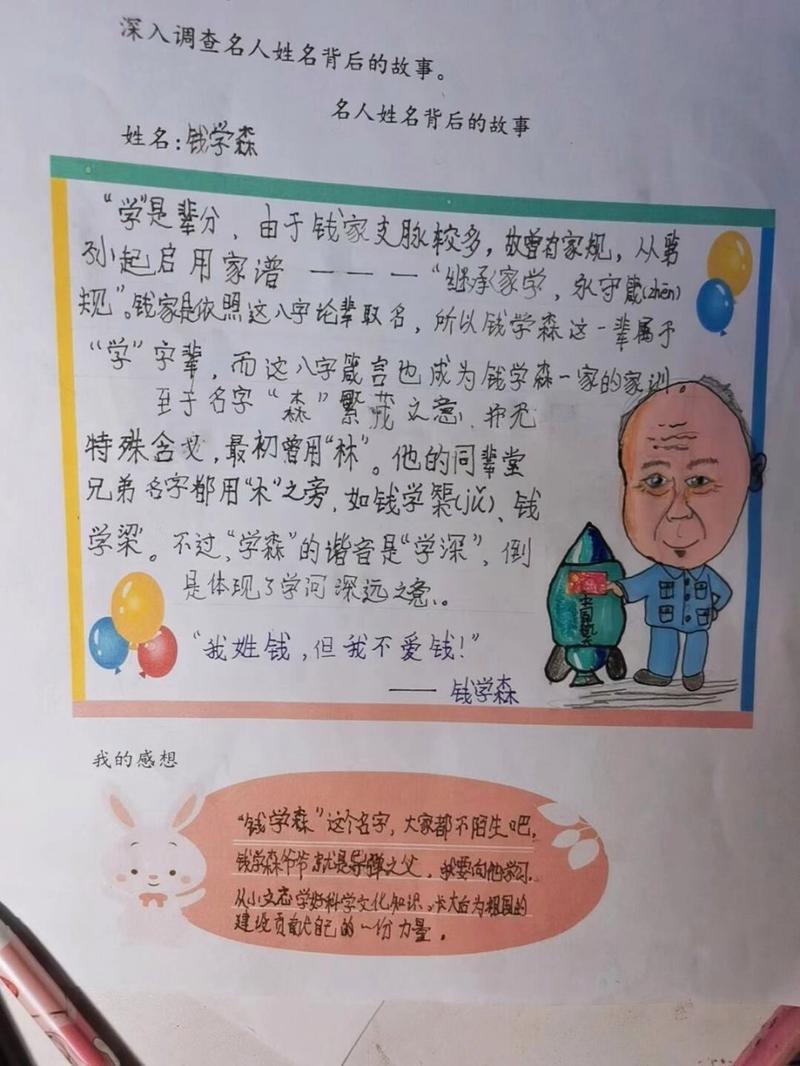 深入调查名人姓名背后的故事。
名人姓名背后的故事
姓名:钱学森
“学”是辈分，由于钱家支脉较多，故曾有家规，从第
孙起启用家谱————“继承家学，永守箴(zhēn)
规”。钱家是依照这八字论辈取名，所以钱学森这一辈属于
“学”字辈，而这八字箴言也成为钱学森一家的家训。
至于名字“森”繁茂之意，并无
特殊含义，最初曾用“林”。他的同辈堂
兄弟名字都用“木”之旁，如钱学榘(jǔ)、钱
学梁。不过，“学森”的谐音是“学深”，倒
是体现了学问深远之意。
“我姓钱，但我不爱钱!”
——钱学森
中国航天
我的感想
“钱学森”这个名字，大家都不陌生吧，
钱学森爷爷就是导弹之父，我要向他学习.
从小立志学好科学文化知识，长大后为祖国的
建设贡献自己的一份力量。